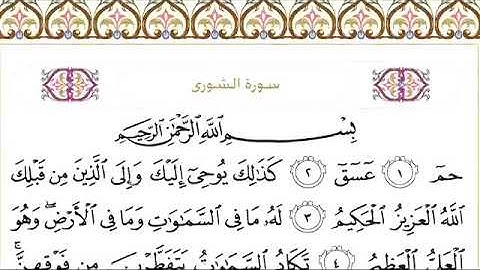 سورة الشورى
بِسْمِ اللَّهِ الرَّحْمَٰنِ الرَّحِيمِ
حمٓ ١ عٓسٓقٓ ٢ كَذَٰلِكَ يُوحِىٓ إِلَيْكَ وَإِلَى الَّذِينَ مِن قَبْلِكَ
اللَّهُ الْعَزِيزُ الْحَكِيمُ ٣ لَهُۥ مَا فِى السَّمَٰوَٰتِ وَمَا فِى الْأَرْضِ ۖ وَهُوَ
الْعَلِىُّ الْعَظِيمُ ٤ تَكَادُ السَّمَٰوَٰتُ يَتَفَطَّرْنَ مِن فَوْقِهِنَّ ۚ